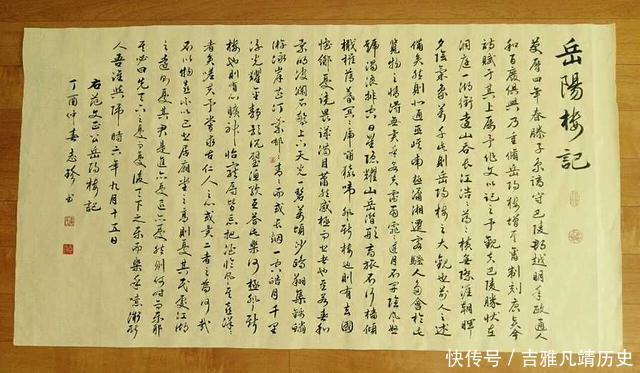 岳陽樓記
慶曆四年春滕子京謫守巴陵郡越明年政通人
和百廢俱興乃重修岳陽樓增其舊制刻唐賢今
人詩賦于其上屬予作文以記之予觀夫巴陵勝狀在
洞庭一湖銜遠山吞長江浩浩湯湯橫無際涯朝暉
夕陰氣象萬千此則岳陽樓之大觀也前人之述
備矣然則北通巫峽南極瀟湘遷客騷人多會於此
覽物之情得無異乎若夫霪雨霏霏連月不開陰風怒
號濁浪排空日星隱耀山岳潛形商旅不行檣傾
楫摧薄暮冥冥虎嘯猿啼登斯樓也則有去國
懷鄉憂讒畏譏滿目蕭然感極而悲者也至若春和
景明波瀾不驚上下天光一碧萬頃沙鷗翔集錦鱗
游泳岸芷汀蘭郁郁青青而或長煙一空皓月千里
浮光躍金靜影沉璧漁歌互答此樂何極登斯
樓也則有心曠神怡寵辱皆忘把酒臨風其喜洋洋
者矣嗟夫予嘗求古仁人之心或異二者之為何哉
不以物喜不以己悲居廟堂之高則憂其民處江湖
之遠則憂其君是進亦憂退亦憂然則何時而樂耶
其必曰先天下之憂而憂後天下之樂而樂乎噫微斯
人吾誰與歸時六年九月十五日
右范文正公岳陽樓記
丁酉仲春志珍書
快传号／吉雅凡靖历史